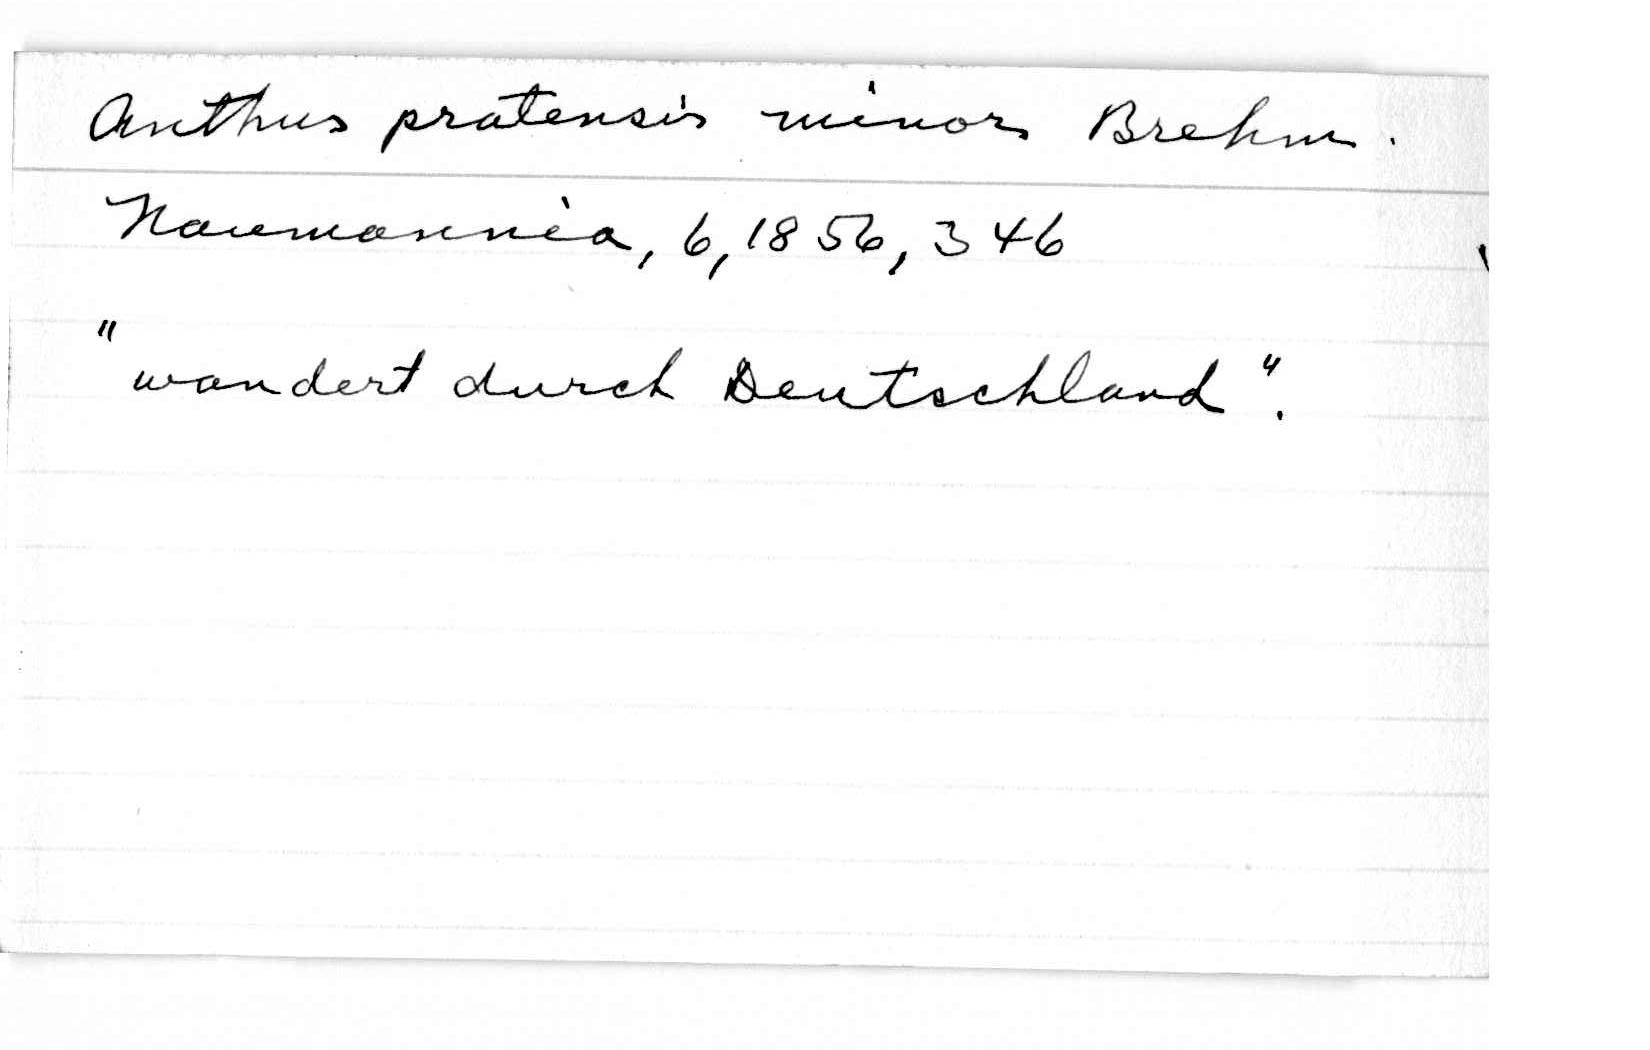 Anthus pratensis minor Brehm.
Naumannia, 6, 1856, 346
"wandert durch Deutschland".